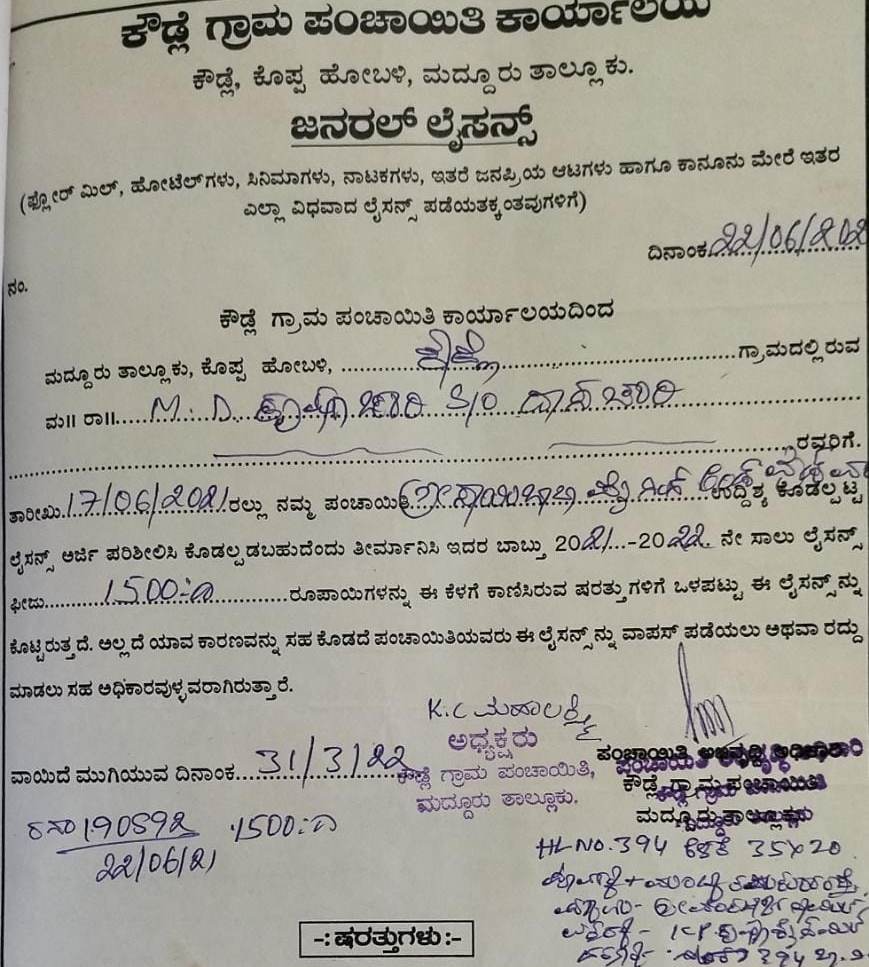 ಕೌಡ್ಲೆ ಗ್ರಾಮ ಪಂಚಾಯಿತಿ ಕಾರ್ಯಾಲಯ
ಕೌಡ್ಲೆ, ಕೊಪ್ಪ ಹೋಬಳಿ, ಮದ್ದೂರು ತಾಲ್ಲೂಕು.
ಜನರಲ್ ಲೈಸನ್ಸ್
(ಫ್ಲೋರ್ ಮಿಲ್, ಹೋಟೆಲ್‌ಗಳು, ಸಿನಿಮಾಗಳು, ನಾಟಕಗಳು, ಇತರೆ ಜನಪ್ರಿಯ ಆಟಗಳು ಹಾಗೂ ಕಾನೂನು ಮೇರೆ ಇತರ
ಎಲ್ಲಾ ವಿಧವಾದ ಲೈಸನ್ಸ್ ಪಡೆಯತಕ್ಕಂತವುಗಳಿಗೆ)
ದಿನಾಂಕ 22/06/202
ನಂ.
ಕೌಡ್ಲೆ ಗ್ರಾಮ ಪಂಚಾಯಿತಿ ಕಾರ್ಯಾಲಯದಿಂದ
ಮದ್ದೂರು ತಾಲ್ಲೂಕು, ಕೊಪ್ಪ ಹೋಬಳಿ, ಕೌಡ್ಲೆ ಗ್ರಾಮದಲ್ಲಿರುವ
ಮ॥ ರಾ॥ M. D. S/O
ರವರಿಗೆ.
ತಾರೀಖು 17/06/2021 ರಲ್ಲು ನಮ್ಮ ಪಂಚಾಯಿತಿ ಶ್ರೀ ಸಾಯಿಬಾಬಾ ಉದ್ದಿಶ್ಯ ಕೊಡಲ್ಪಟ್ಟ
ಲೈಸನ್ಸ್ ಅರ್ಜಿ ಪರಿಶೀಲಿಸಿ ಕೊಡಲ್ಪಡಬಹುದೆಂದು ತೀರ್ಮಾನಿಸಿ ಇದರ ಬಾಬ್ತು 2021 -2022 ನೇ ಸಾಲು ಲೈಸನ್ಸ್
ಫೀಜು 1500 ರೂಪಾಯಿಗಳನ್ನು ಈ ಕೆಳಗೆ ಕಾಣಿಸಿರುವ ಷರತ್ತುಗಳಿಗೆ ಒಳಪಟ್ಟು ಈ ಲೈಸನ್ಸ್‌ನ್ನು
ಕೊಟ್ಟಿರುತ್ತದೆ. ಅಲ್ಲದೆ ಯಾವ ಕಾರಣವನ್ನು ಸಹ ಕೊಡದೆ ಪಂಚಾಯಿತಿಯವರು ಈ ಲೈಸನ್ಸ್‌ನ್ನು ವಾಪಸ್ ಪಡೆಯಲು ಅಥವಾ ರದ್ದು
ಮಾಡಲು ಸಹ ಅಧಿಕಾರವುಳ್ಳವರಾಗಿರುತ್ತಾರೆ.
K.C ಮಹಾಲಕ್ಷ್ಮಿ
ಅಧ್ಯಕ್ಷರು
ಕೌಡ್ಲೆ ಗ್ರಾಮ ಪಂಚಾಯಿತಿ,
ಮದ್ದೂರು ತಾಲ್ಲೂಕು.
ಪಂಚಾಯಿತಿ ಅಭಿವೃದ್ಧಿ ಅಧಿಕಾರಿ
ಕೌಡ್ಲೆ ಗ್ರಾಮ ಪಂಚಾಯಿತಿ
ಮದ್ದೂರು ತಾಲ್ಲೂಕು
ವಾಯಿದೆ ಮುಗಿಯುವ ದಿನಾಂಕ 31/3/22
190592 1500
22/06/21
HL NO. 394 35X20
-: ಷರತ್ತುಗಳು :-